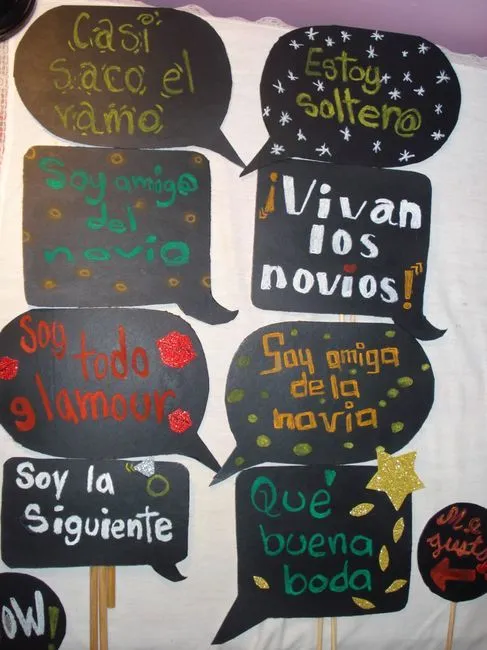 Casi
saco el
ramo
Estoy
solter@
Soy amig@
del
novio
¡Vivan
los
novios!
Soy todo
glamour
Soy amiga
de la
novia
Soy la
Siguiente
Qué
buena
boda
Me
gusta
OW!